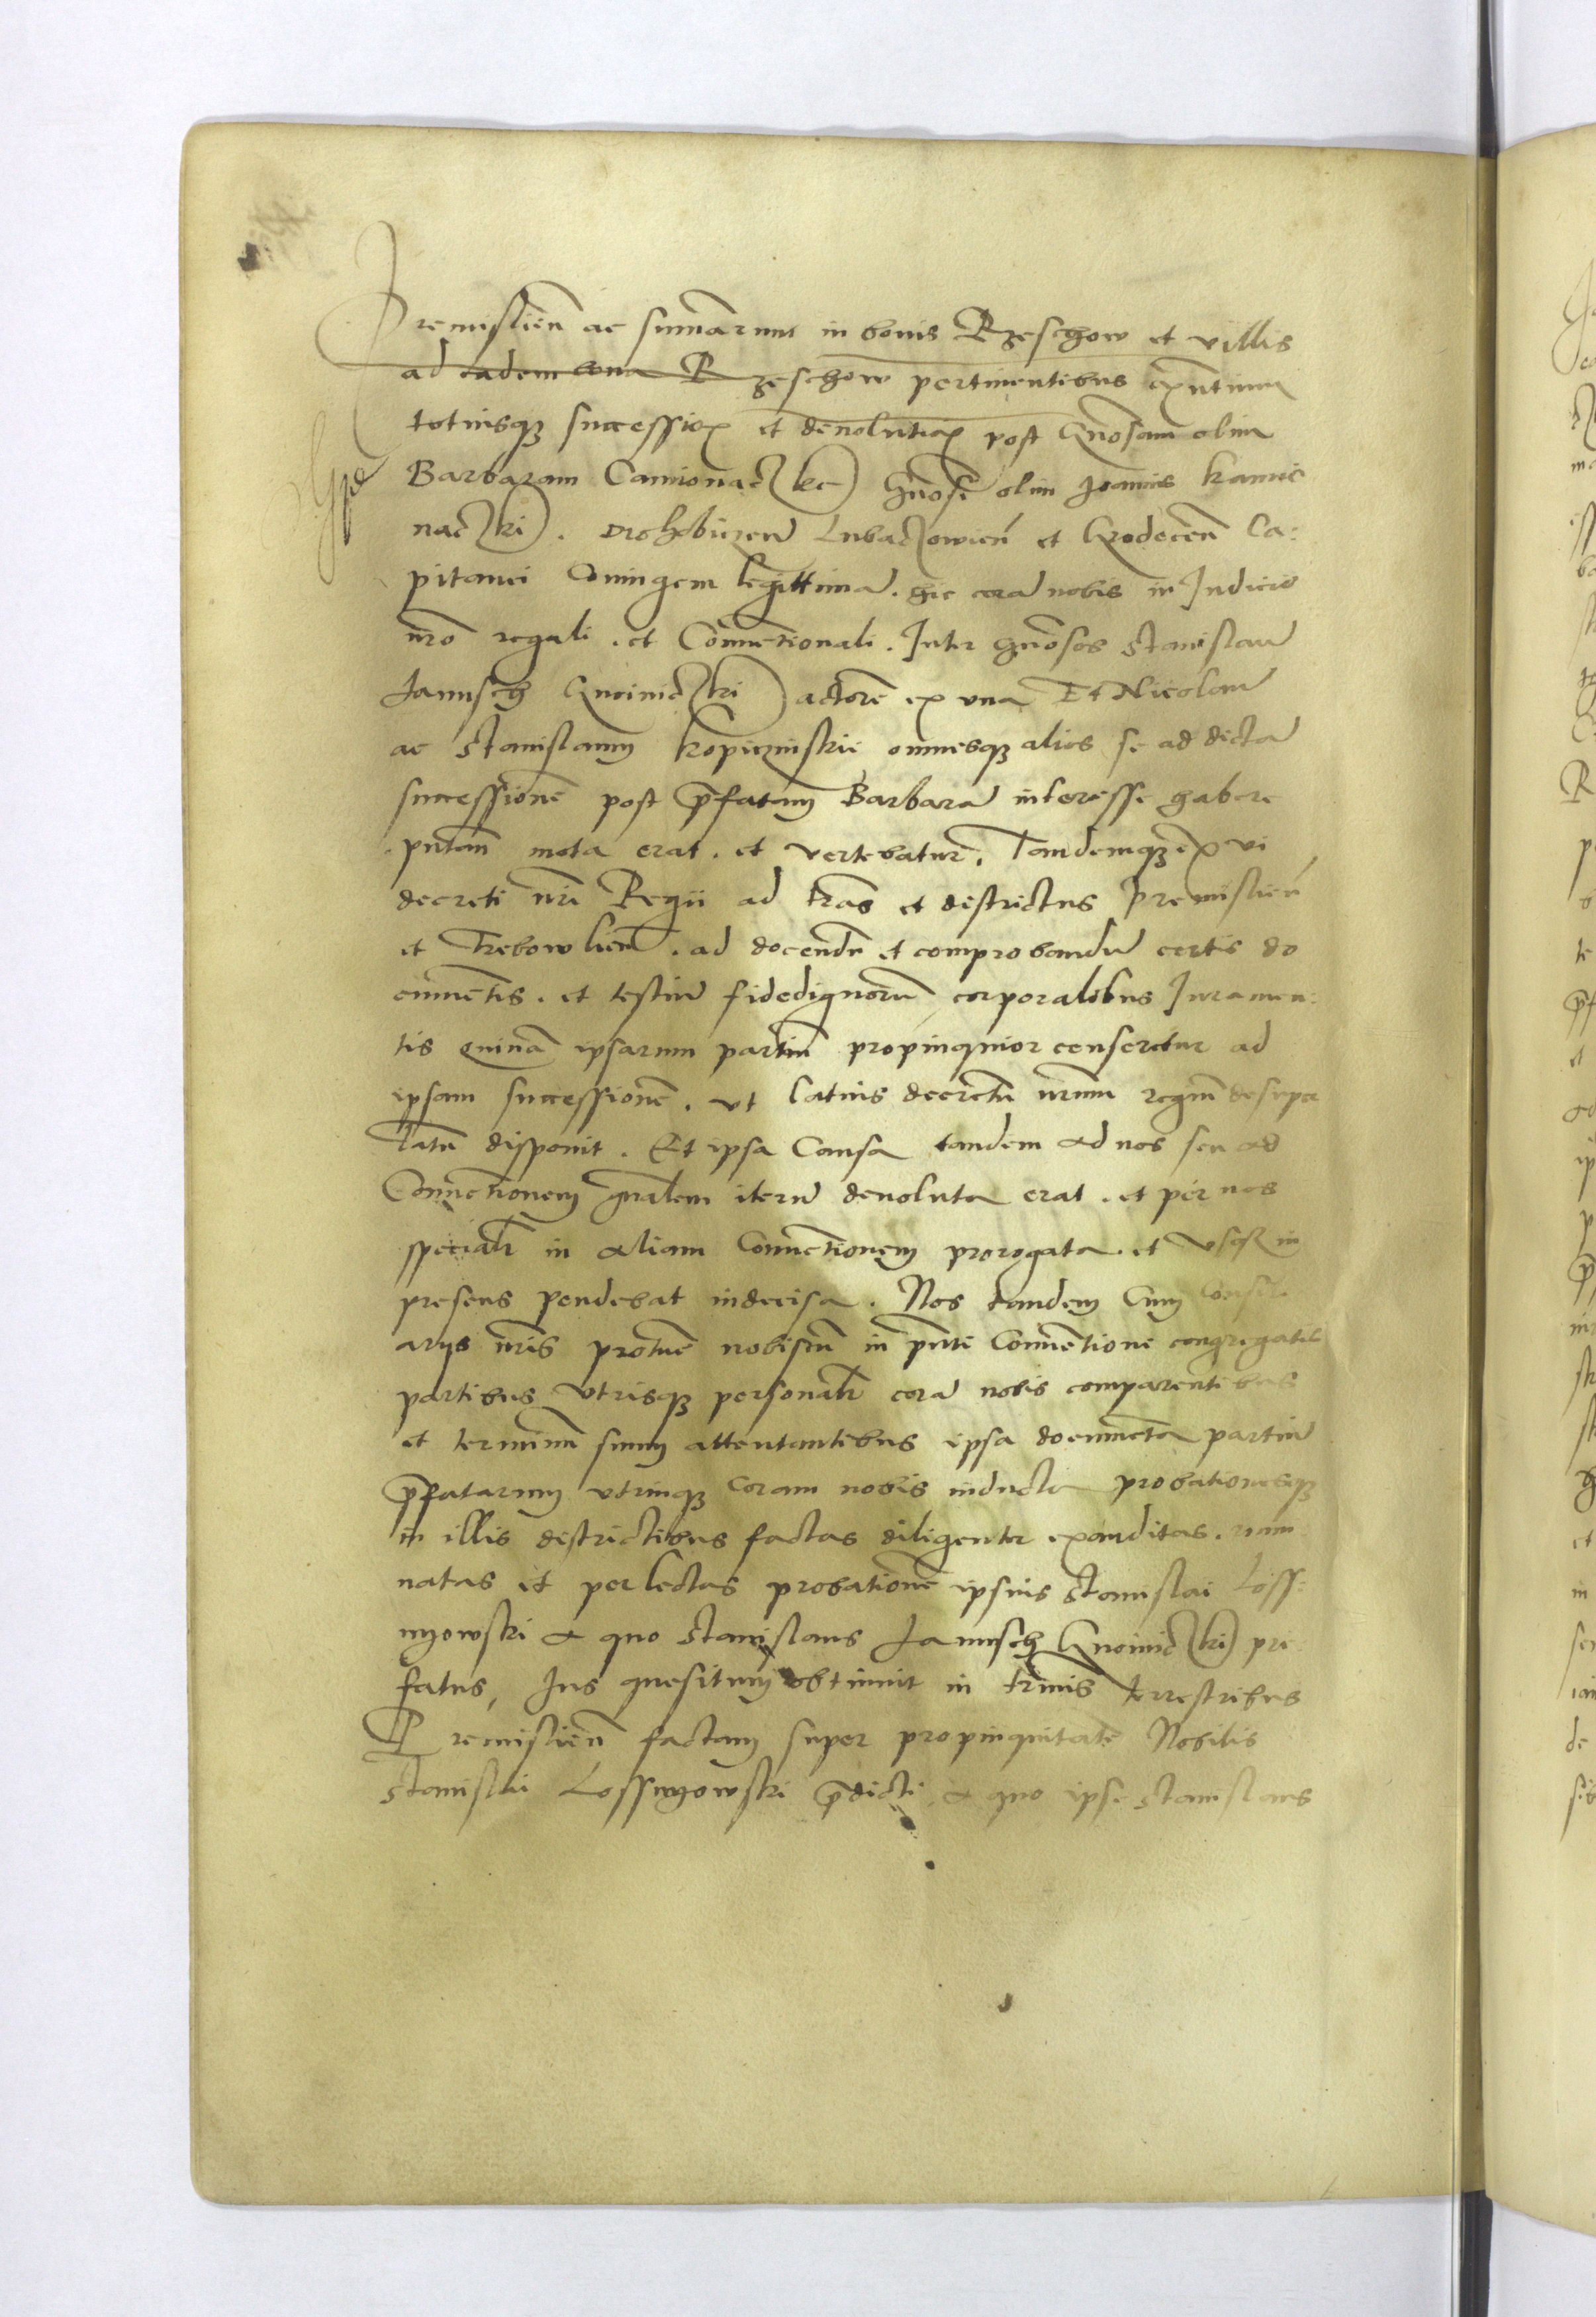 Premislien̄ ac sum̄arum in bonis Rzeschow et villis
ad eadem bona Rzeschow pertinentibus
totiusqꝫ et post Gn̄osam olim
Barbaram Gn̄osi olim Joannis Kamie
naczki. Drohobiczen̄ Lubaczowien̄ et Grodecen̄ Ca:
pitanei Coniugem legittimā. hic corā nobis in Judicio
nr̄o regali. et Conuētionali. Inter gn̄osos Stanislaū
Janusch Gnoiniczki actorē ex vna Et Nicolaū
ac Stanislaum Kopiczinskii omnesqꝫ alios se ad dictā
successionē post p̄fatam Barbarā interesse habere
putan̄ mota erat. et vertebatur. Tandemqꝫ ex vi
decreti nr̄i Regii ad tr̄as et districtus Premislien̄
et Trebowlien̄. ad docendū et comprobandū certis do
cumētis. et testiū fidedignorū corporalibus Juramen:
tis quinā ipsarum partiū propinquior censeretur ad
ipsam successionē. vt latius decretū nr̄um regiū desuper
latū disponit. Et ipsa Causa tandem ad nos seu ad
Conuētionem gn̄alem iterū deuoluta erat. et per nos
specialr̄ in aliam Conuētionem prorogata. et vsqꝫ in
presens pendebat indecisa. Nos tandem Cum Consili
arijs nr̄is protūc nobiscū in pn̄ti Conuētione congregatis
partibus vtrisqꝫ personalr̄ corā nobis comparentibus
et terminū suum attentantibus ipsa documēta partiū
p̄fatarum vtrinqꝫ coram nobis inducta probationesqꝫ
in illis districtibus factas diligenter exauditas.
natas et perlectas probationē ipsius Stanislai Loss:
niowski a quo Stanislaus Janusch Gnoiniczki pre
fatus, Jus quesitum obtinuit in tr̄mis terrestribus
Premislien̄ factam super propinquitate Nobilis
Stanislai p̄dicti, a quo ipse Stanislaus